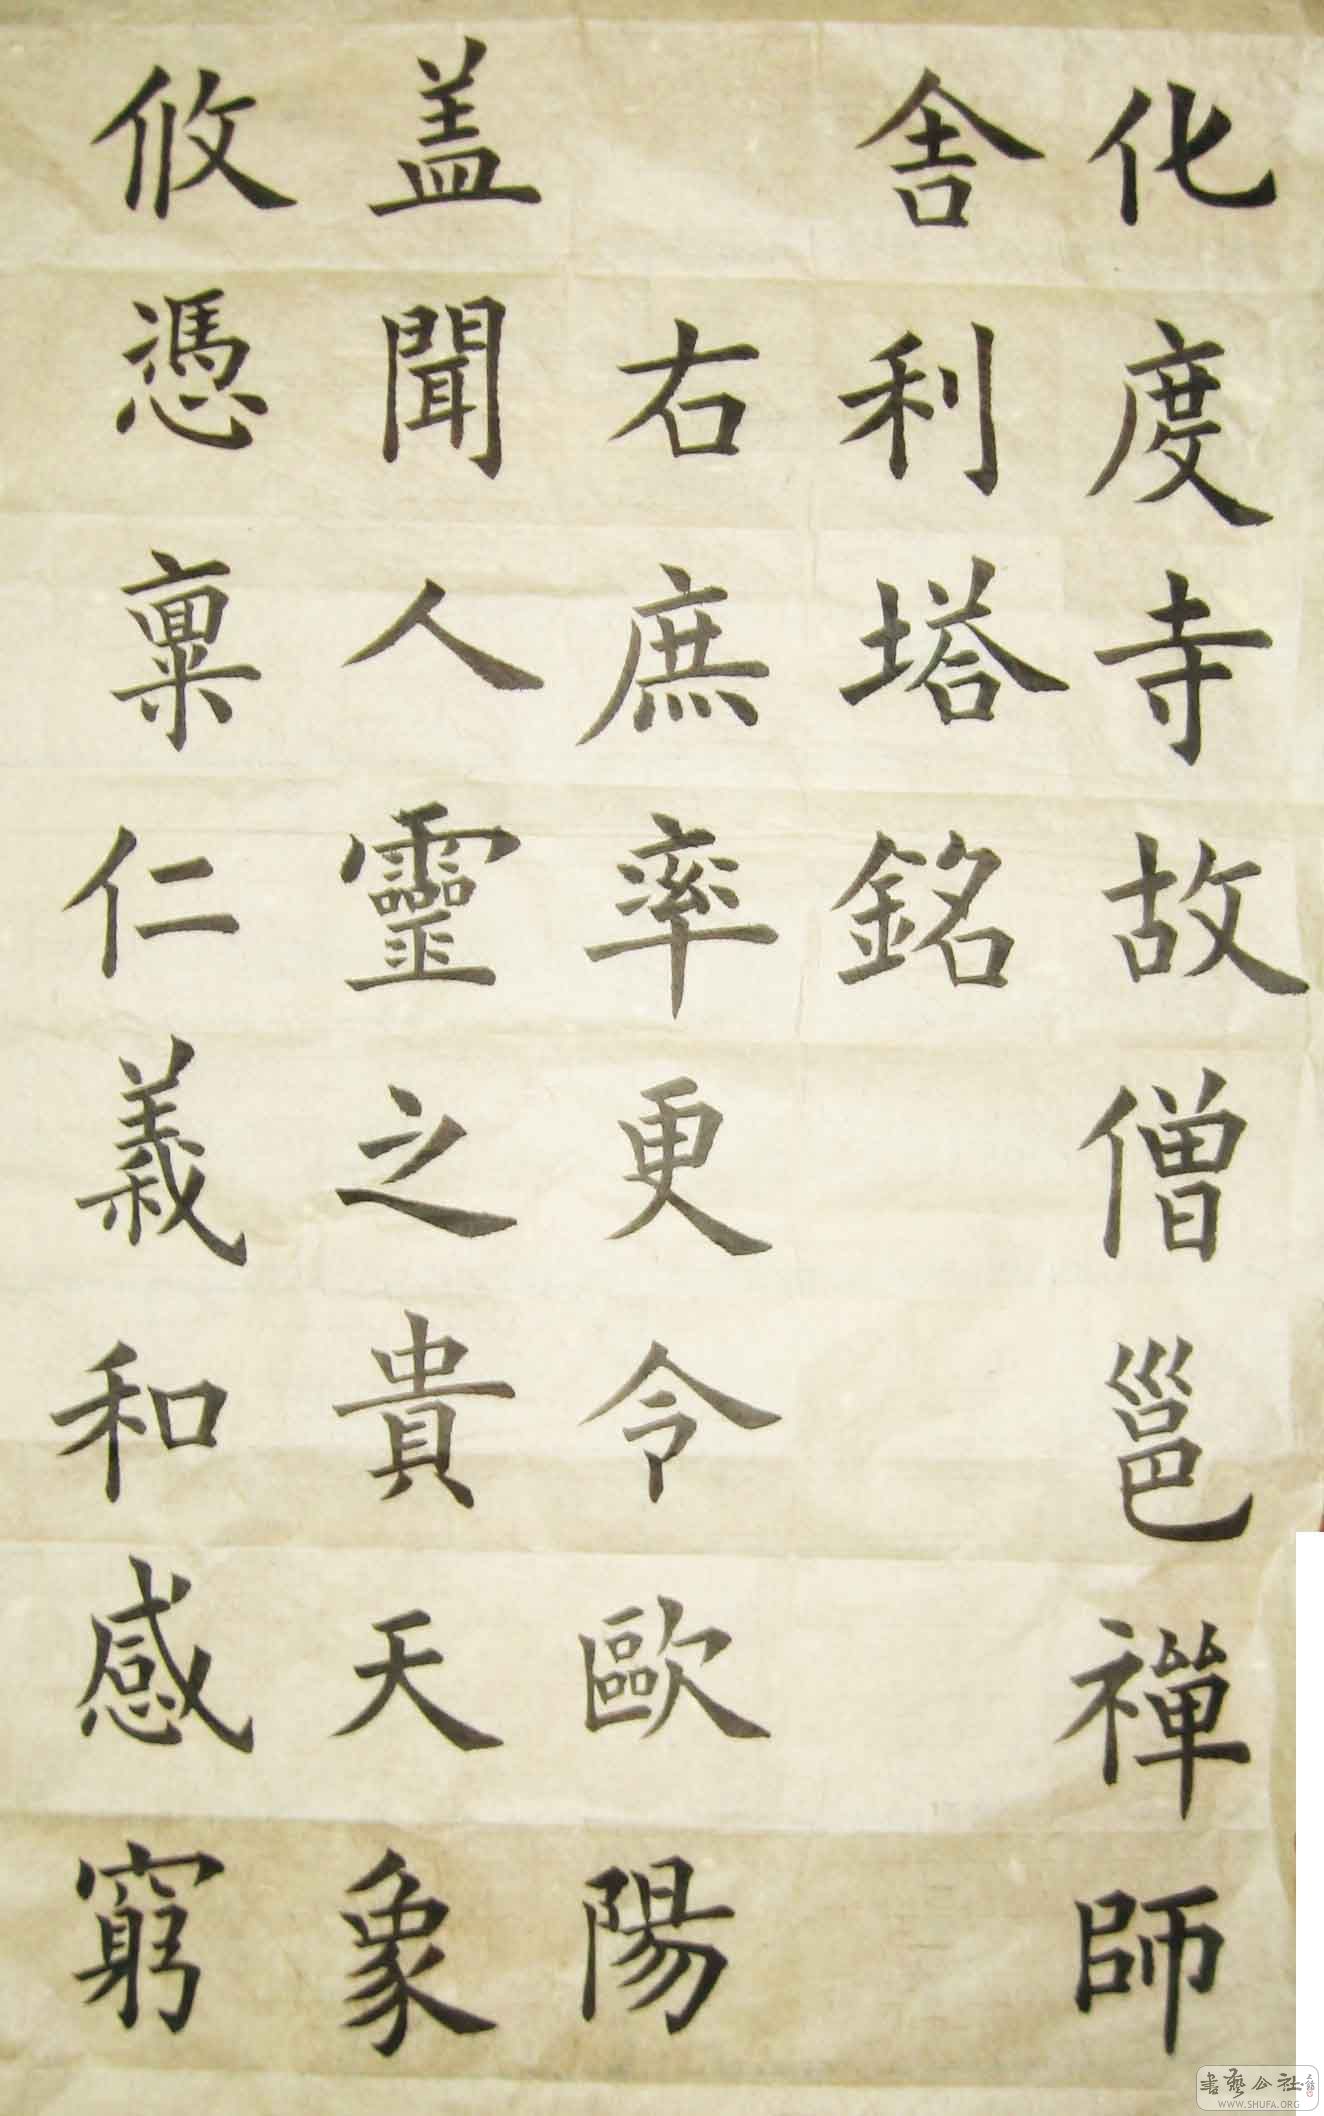 化度寺故僧邕禪師
舍利塔銘
右庶率更令歐陽
盖聞人靈之貴天象
攸憑稟仁義和感窮
書藝公社
WWW.SHUFA.ORG